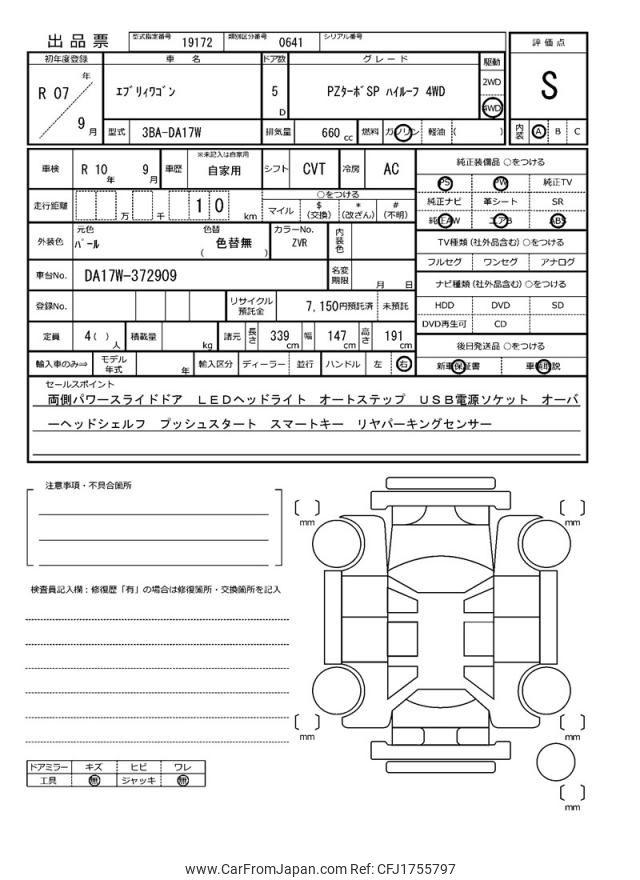 出品票 型式指定番号 19172 類別区分番号 0641 シリアル番号
初年度登録 車名 ドア数 グレード 駆動 評価点
R 07 年 9 月 エブリィワゴン 5 D PZターボSP ハイルーフ 4WD 2WD 4WD S
型式 3BA-DA17W 排気量 660 cc 燃料 ガソリン 軽油 ( ) 内装 A B C
車検 R 10 年 9 月 車歴 ※未記入は自家用 自家用 シフト CVT 冷房 AC 純正装備品 ○をつける
PS PW 純正TV
走行距離 万 千 1 0 km ○をつける マイル $ (交換) * (改ざん) # (不明) 純正ナビ 革シート SR
純正AW エアB ABS
外装色 元色 パール 色替 色替無 ( ) カラーNo. ZVR 内装色 TV種類 (社外品含む) ○をつける
フルセグ ワンセグ アナログ
車台No. DA17W-372909 名変期限 月 日 ナビ種類 (社外品含む) ○をつける
登録No. リサイクル預託金 7,150円預託済 未預託 HDD DVD SD
DVD再生可 CD
定員 4( ) 人 積載量 kg 諸元 長さ 339 cm 幅 147 cm 高さ 191 cm 後日発送品 ○をつける
輸入車のみ⇒ モデル年式 年 輸入区分 ディーラー 並行 ハンドル 左 右 新車保証書 車輌取説
セールスポイント
両側パワースライドドア LEDヘッドライト オートステップ USB電源ソケット オーバ
ーヘッドシェルフ プッシュスタート スマートキー リヤパーキングセンサー
注意事項・不具合箇所
[ ] mm
[ ] mm
検査員記入欄：修復歴「有」の場合は修復箇所・交換箇所を記入
[ ] mm
[ ] mm
ドアミラー キズ ヒビ ワレ
工具 無 ジャッキ 無
[ ] mm
www.CarFromJapan.com Ref: CFJ1755797